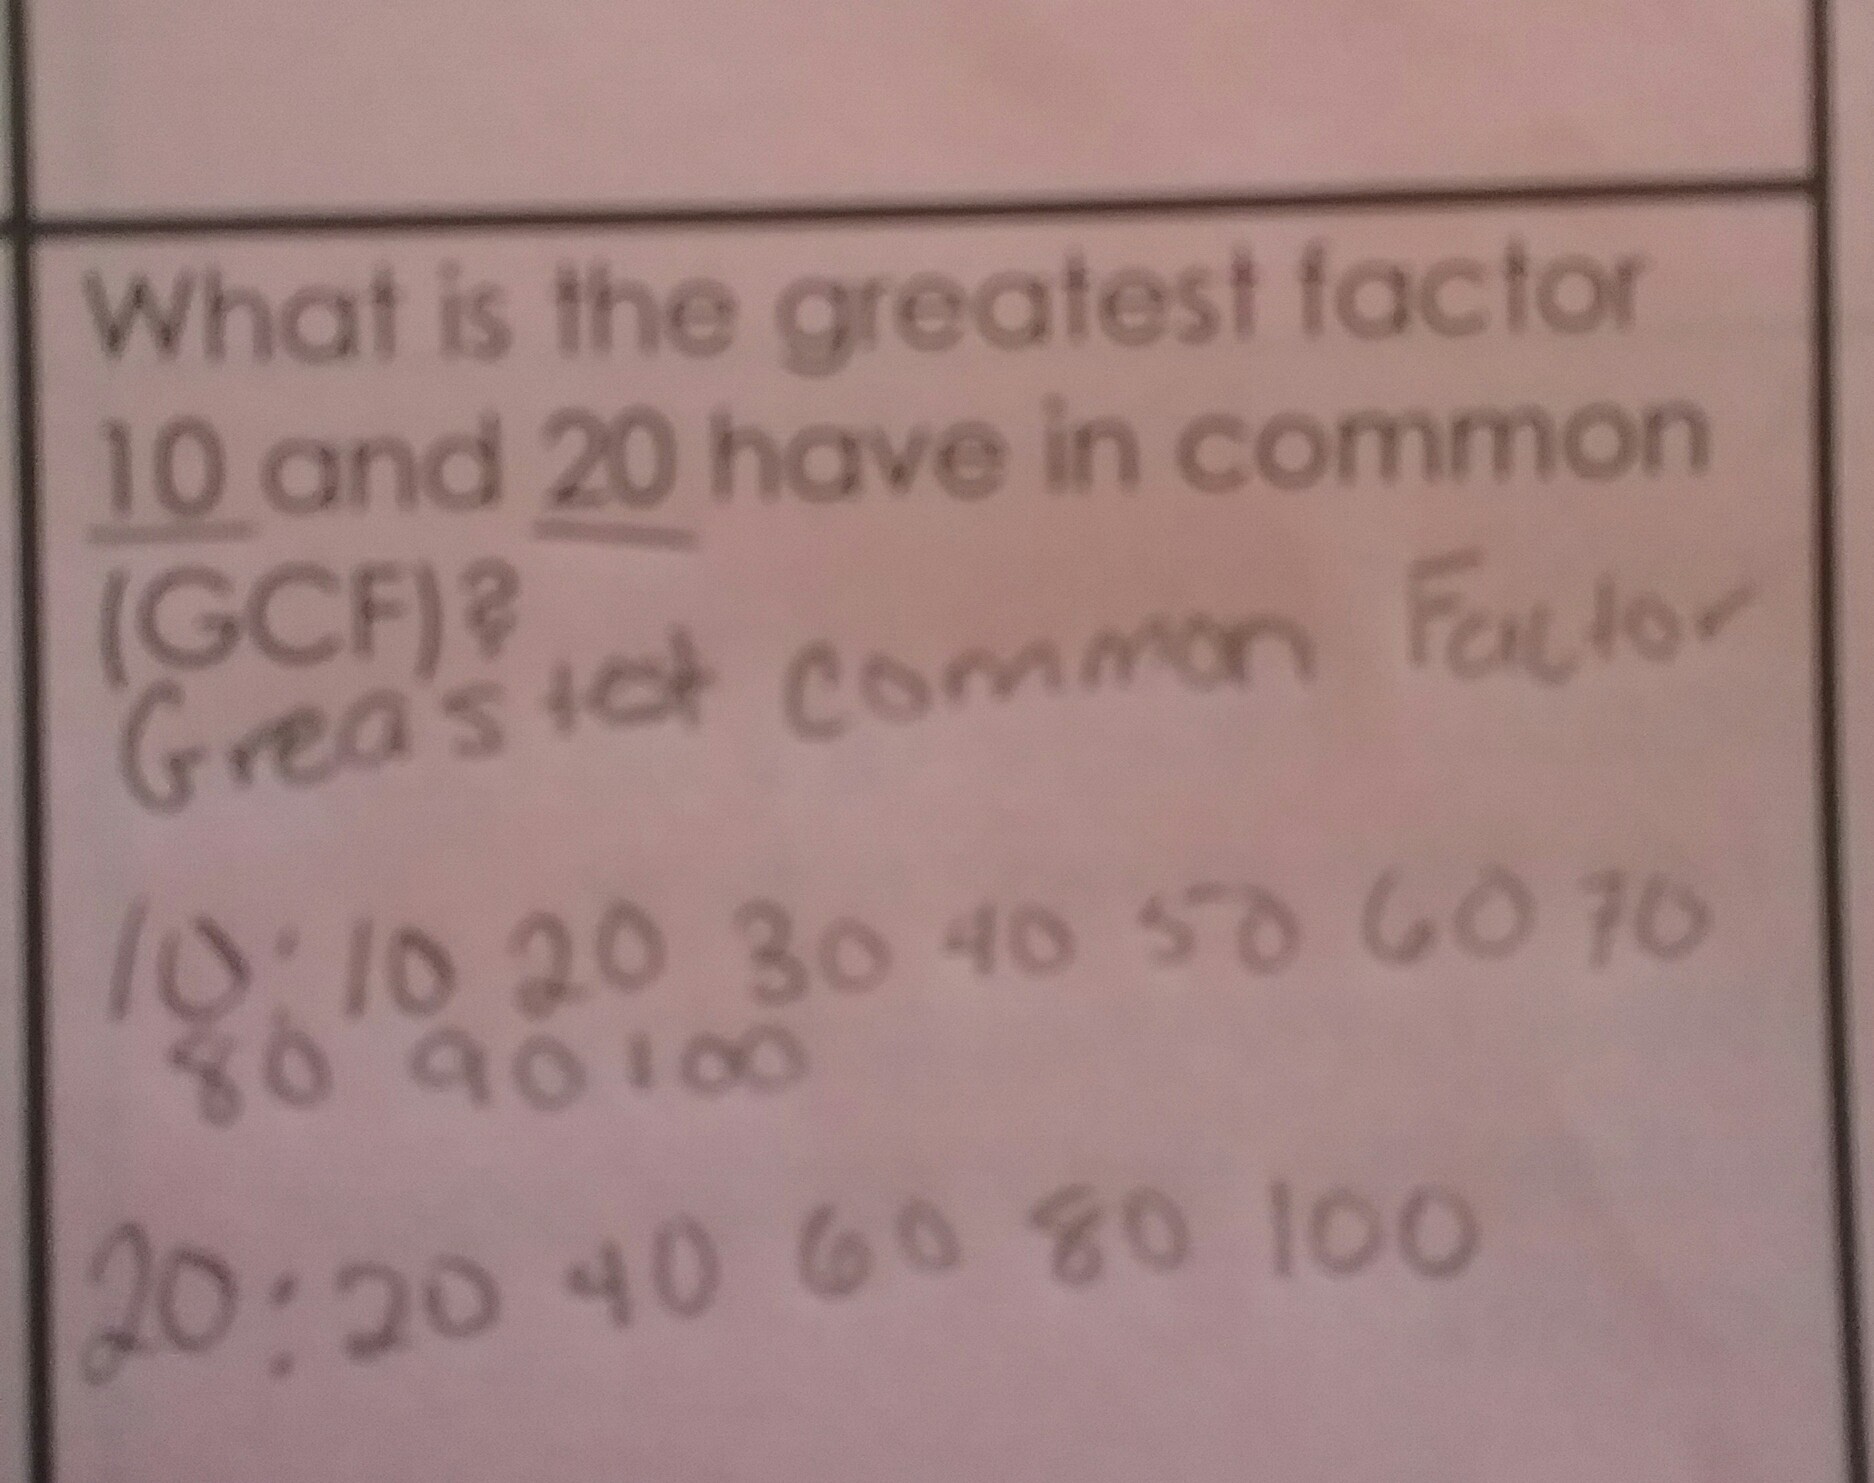 What is the greatest factor
10 and 20 have in common
(GCF)?
Greastet common Factor
10: 10 20 30 40 50 60 70
80 90 100
20: 20 40 60 80 100